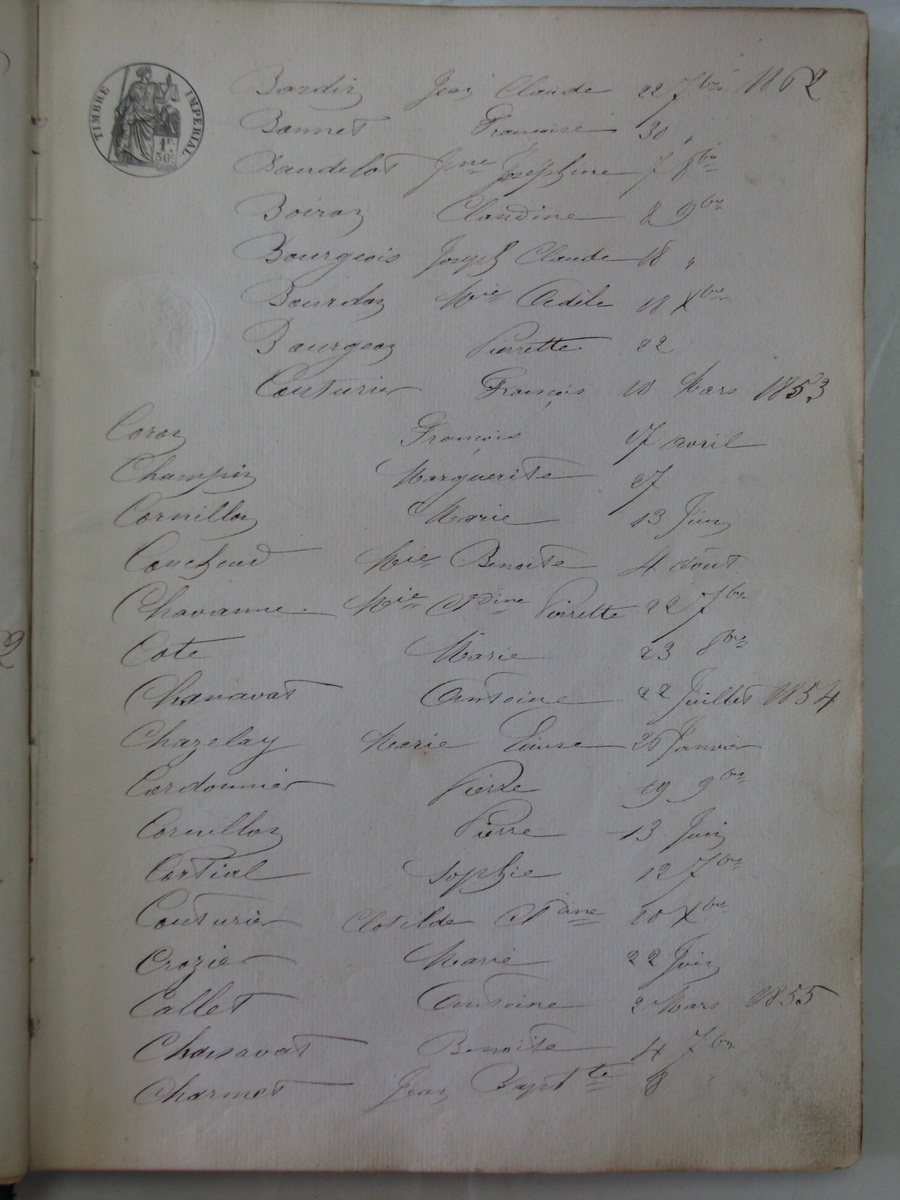 TIMBRE IMPERIAL
1F.
50c.
Bardin Jean Claude 22 7bre 1862
Bonnet Françoise 30 "
Bandelot Jne Joséphine 7 8bre
Boiron Claudine 2 9bre
Bourgeois Joseph Claude 18 "
Bourdon Mie Odile 18 Xbre
Bourgeon Pierrette 22
Couturier François 10 Mars 1853
Coron François 17 avril
Champin Marguerite 27
Cornillon Marie 13 Juin
Couchoud Mie Benoite 4 aout
Chavanne Mie Pierrette 22 7bre
Cote Marie 23 8bre
Chanavat Antoine 22 Juillet 1854
Chazelay Marie Louise 26 Janvier
Cordonnier Pierre 19 9bre
Cornillon Pierre 13 Juin
Cortial Sophie 12 7bre
Couturier Clotilde 20 Xbre
Crozier Marie 22 Juin
Callet Antoine 2 Mars 1855
Chanavat Benoite 4 7bre
Charmet Jean Baptte 8